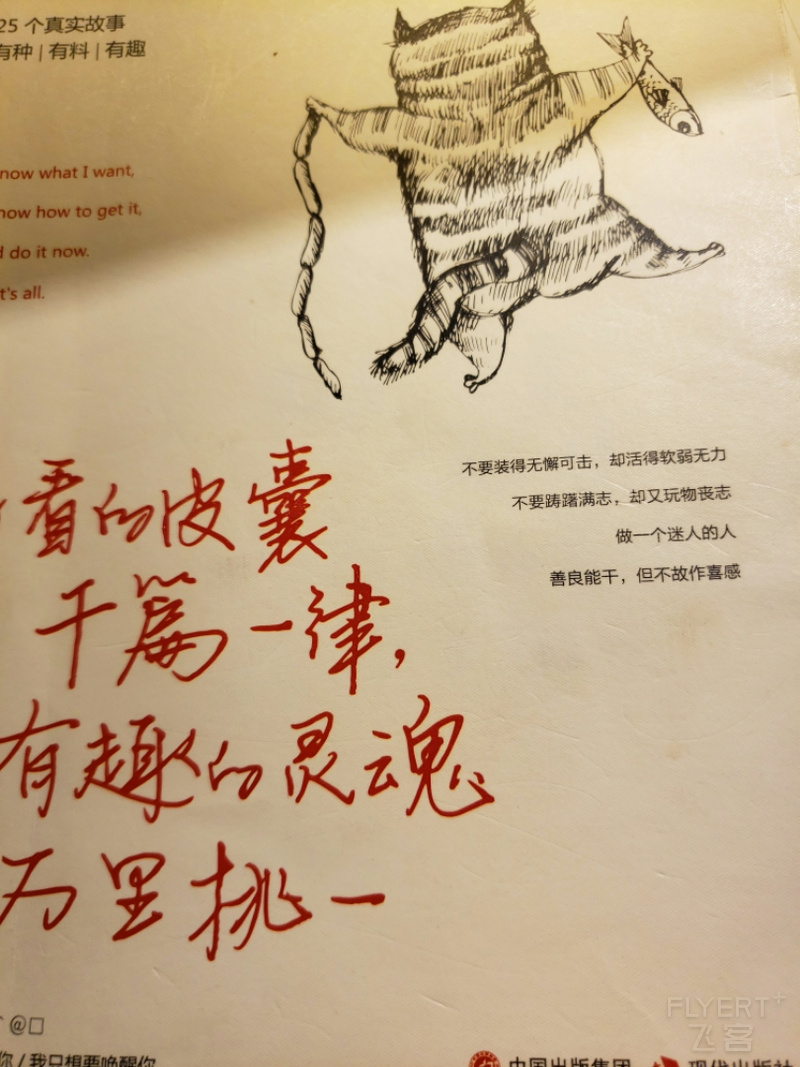 25 个真实故事
有种 | 有料 | 有趣
now what I want,
now how to get it,
d do it now.
t's all.
不要装得无懈可击，却活得软弱无力
不要踌躇满志，却又玩物丧志
做一个迷人的人
善良能干，但不故作喜感
看的皮囊
千篇一律，
有趣的灵魂
万里挑一
@口
你 / 我只想要唤醒你
中国出版集团
现代出版社
FLYERT
飞客